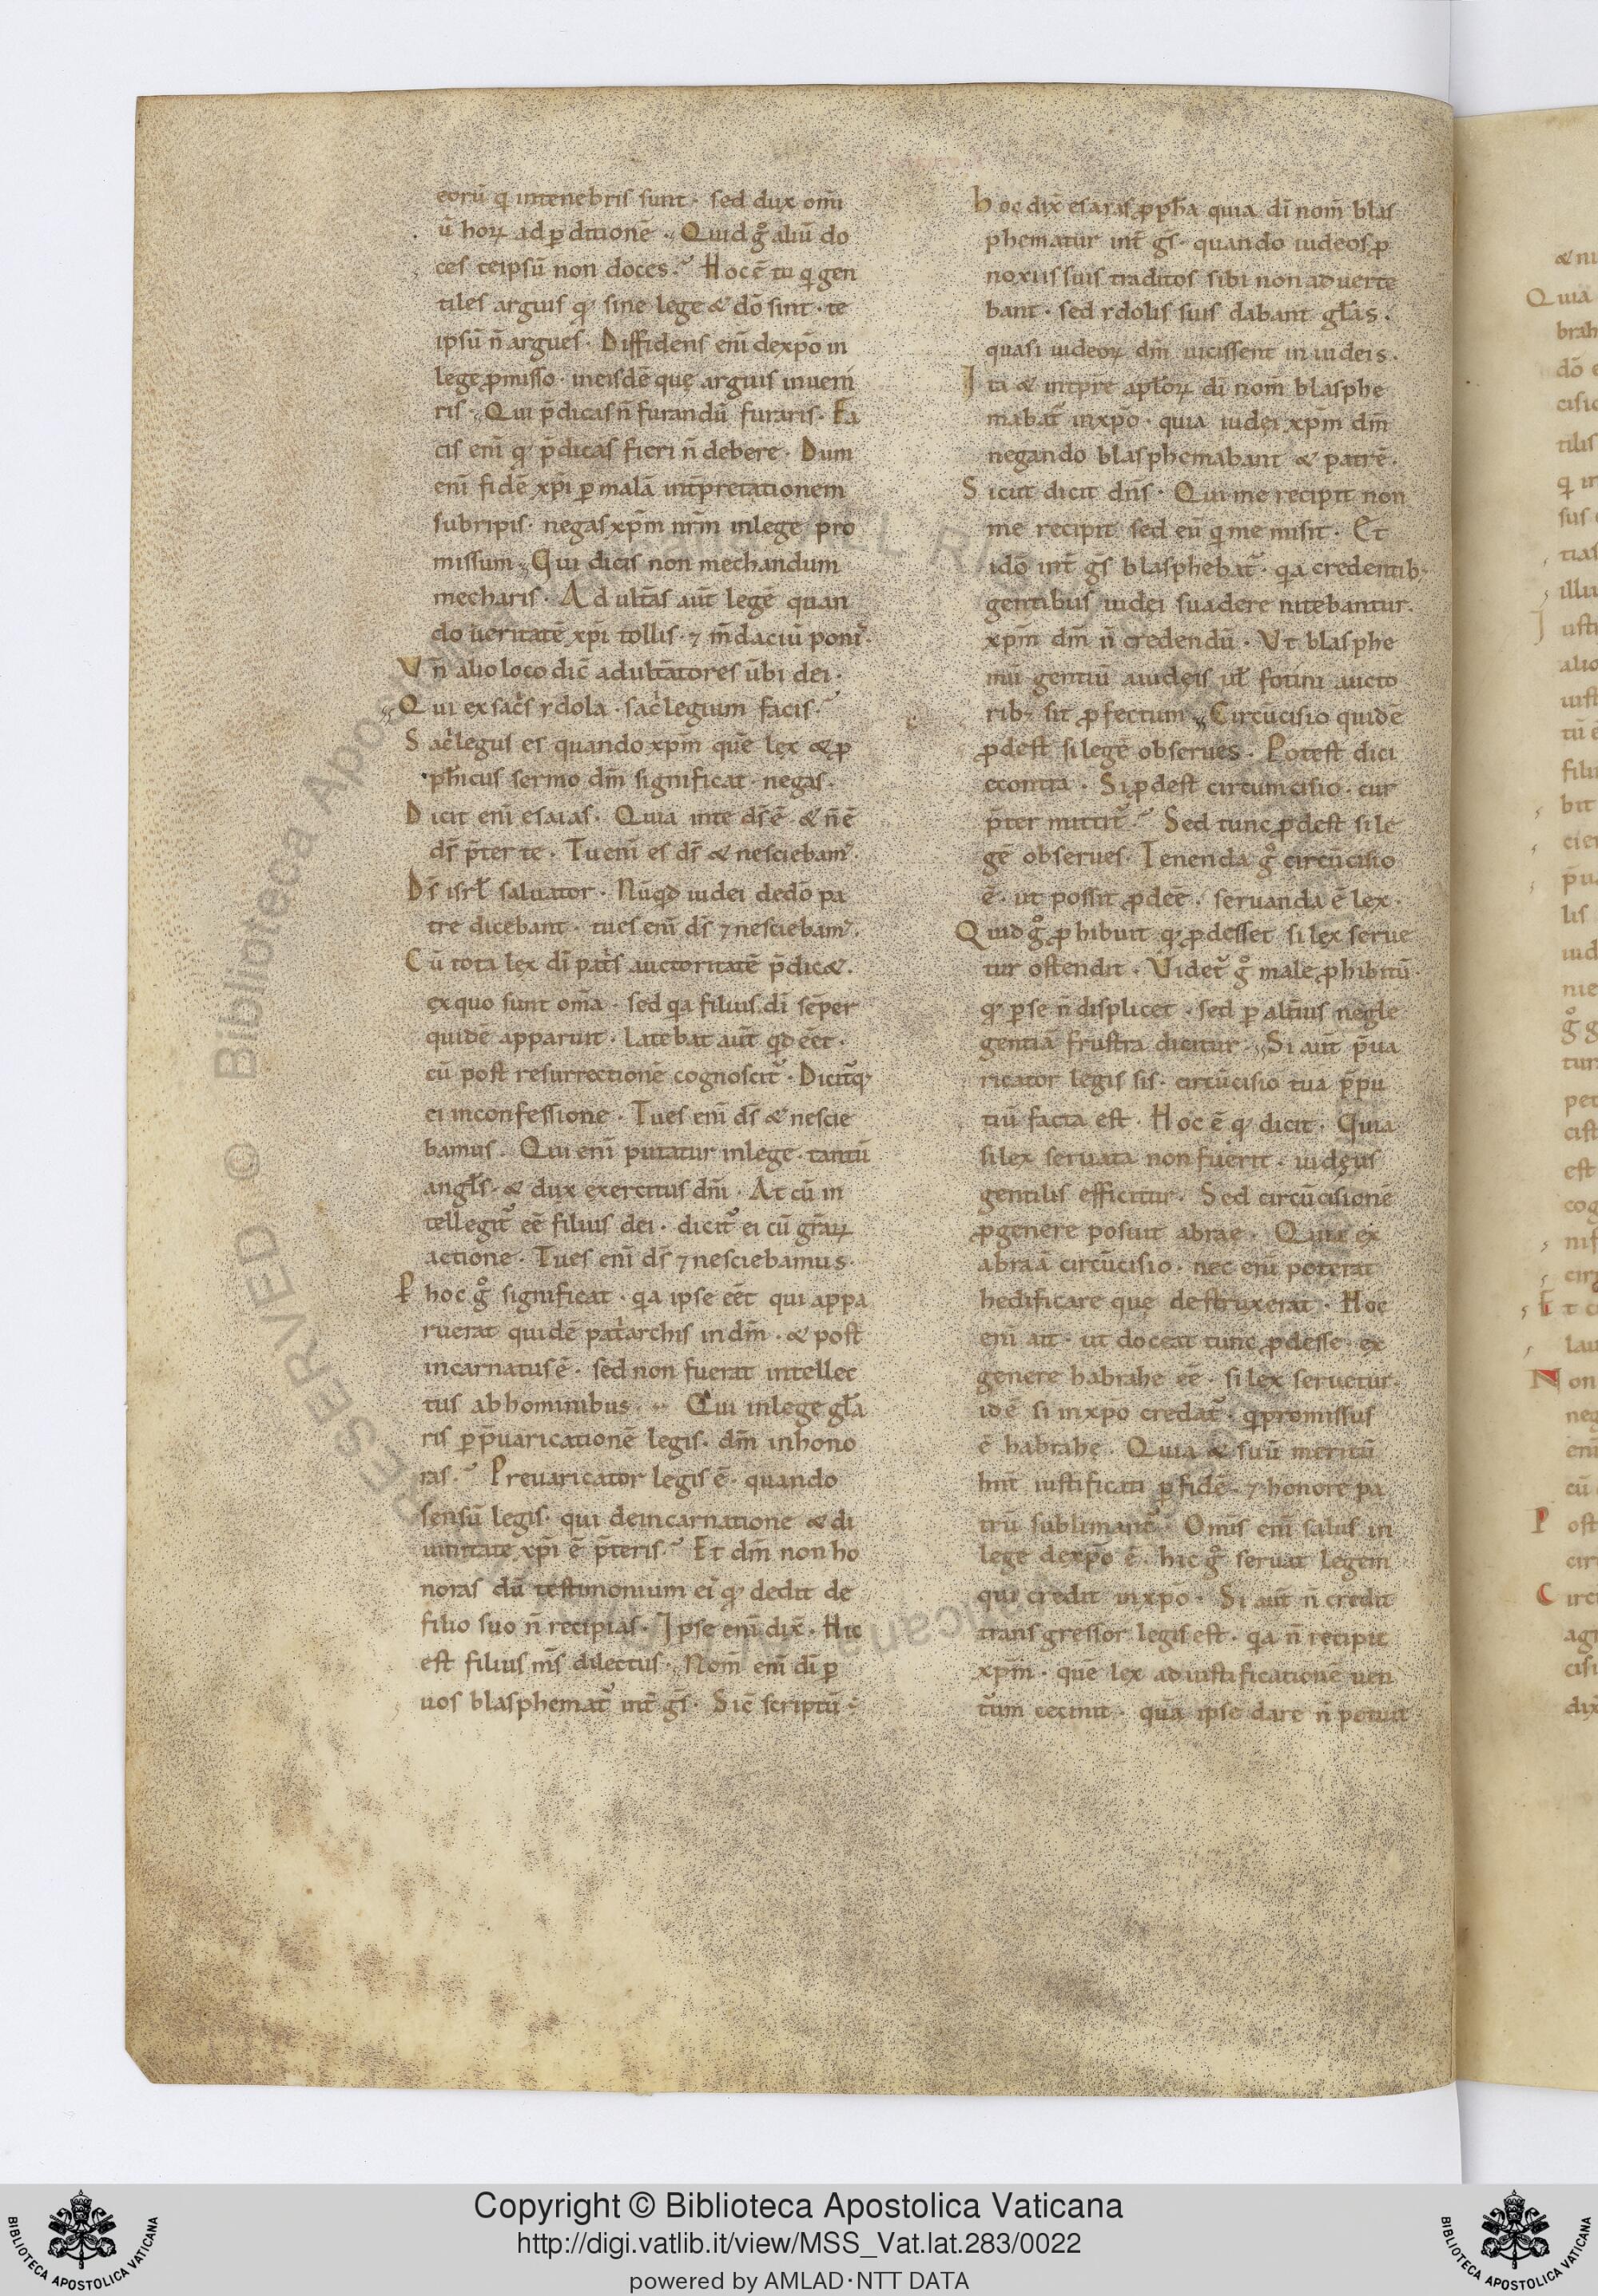 eorū q intenebris sunt · sed dux om̄i
ū hoꝝ ad ꝑditionē · Quid gͦ aliū do
ces teipsū non doces · Hoc ē tu qͥ gen
tiles arguis qͩ sine lege & dō sint · te
ipsū n̄ argues · Diffidens eni̅ dexp̄o in
lege ꝓmisso · ineisdē quę arguis inueni
ris · Qui p̄dicas n̄ furandū furaris · Fa
cis eni̅ qͩ p̄dicas fieri n̄ debere · Dum
eni̅ fidē xp̄i ꝑ malā int̄pretationem
subripis · negas xp̄m nr̄m inlege pro
missum · Qui dicis non mechandum
mecharis · Adult̄as aut̄ legē quan
do ueritatē xp̄i tollis · ⁊ m̄daciū poni᷑ ·
Vn̄ alio loco dic̄ adult̄atores ūbi dei ·
Qui exsac̄s ydola · sac̓legium facis ·
Sac̓legus es quando xp̄m quē lex & ꝓ
ph̄icus sermo dm̄ significat · negas ·
Dicit eni̅ esaias · Quia inte ds̄ ē · & n̄ ē
ds̄ p̄ter te · Tu eni̅ es ds̄ & nesciebam᷑ ·
Ds̄ isrl̄ saluator · Nūqͩ iudei dedō pa
tre dicebant · tues eni̅ ds̄ ⁊ nesciebam᷑ ·
Cū tota lex di̅ pat̓s auctoritatē p̄dic& ·
exquo sunt om̄a · sed qͣ filius di̅ sēper
quidē apparuit · Latebat aut̄ qͩ eēt ·
cū post resurrectionē cognoscit᷑ · Dicit᷑qͩ
ei inconfessione · Tues eni̅ ds̄ & nescie
bamus · Qui eni̅ putatur inlege · tantū
angl̄s · & dux exercitus dn̄i · At cū in
tellegit᷑ eē filius dei · dicit᷑ ei cū gr̄aꝝ
actione · Tues eni̅ ds̄ ⁊ nesciebamus ·
P hoc gͦ significat · qͣ ipse eēt qui appa
ruerat quidē pat̓archis in dm̄ · & post
incarnatus ē · sed non fuerat intellec
tus abhominibus · Qui inlege gl̄a
ris ꝑ p̄uaricationē legis · dm̄ inhono
ras · Preuaricator legis ē · quando
sensū legis · qui deincarnatione & di
uinitate xp̄i ē p̄teris · Et dm̄ non ho
noras dū testimonium ei qͩ dedit de
filio suo n̄ recipias · Ipse eni̅ dix̄ · Hic
est filius m̄s dilectus · Nom̄ eni̅ di̅ ꝑ
uos blasphemat᷑ int̄ gs̄ · Sic̄ scriptū ē ·
Hoc dix̄ esaias ꝓph̄a quia di̅ nom̄ blas
phematur int̄ gs̄ · quando iudeos ꝓ
noxiis suis traditos sibi non aduerte
bant · sed ydolis suis dabant gl̄as ·
quasi iudeoꝝ dm̄ uicissent in iudeis ·
Ita & int̄pr̄e apl̄oꝝ di̅ nom̄ blasphe
mabat᷑ inxp̄o · quia iudei xp̄m dm̄
negando blasphemabant & patrē ·
Sicut dicit dn̄s · Qui me recipit non
me recipit sed eū qͥ me misit · Et
idō int̄ gs̄ blasphebat᷑ · qͣ credentib;
gentibus iudei suadere nitebantur ·
xp̄m dm̄ n̄ credendū · Vt blasphe
miū gentiū aiudeis ul̄ fotini aucto
rib; sit ꝓfectum · Circūcisio quidē
ꝓdest si legē obserues · Potest dici
econtra · Si ꝓdest circumcisio · cur
p̄ter mittit᷑ · Sed tunc ꝓdest si le
gē obserues · Tenenda gͦ circūcisio
ē · ut possit ꝓdeē · seruanda ē lex ·
Quid gͦ ꝓhibuit qͩ ꝓdesset si lex serue
tur ostendit · Videt᷑ gͦ male ꝓhibitū ·
qͩ ꝑse n̄ displicet · sed ꝑ alt̄ius negle
gentiā frustra dicitur · Si aut̄ p̄ua
ricator legis sis · circūcisio tua p̄pu
tiū facta est · Hoc ē qͩ dicit · Quia
si lex seruata non fuerit · iudęus
gentilis efficitur · Sed circūcisionē
ꝓgenere posuit abrae · Quia ex
abraā circūcisio · nec eni̅ poterat
hedificare que destruxerat · Hoc
eni̅ ait · ut doceat tunc ꝓdesse · ex
genere habrahe eē · si lex seruetur ·
idē si inxpo credat᷑ · qͥ promissus
ē habrahe · Quia & suū meritū
hn̄t iustificati ꝑ fidē · ⁊ honore pa
trū sublimant᷑ · Om̄is eni̅ salus in
lege dexp̄o ē · hic gͦ seruat legem
qui credit inxpo · Si aut̄ n̄ credit
transgressor legis est · qͣ n̄ recipit
xp̄m · quē lex adiustificationē uen
t᷑um cecinit · quā ipse dare n̄ potuit
Copyright © Biblioteca Apostolica Vaticana
http://digi.vatlib.it/view/MSS_Vat.lat.283/0022
powered by AMLAD·NTT DATA